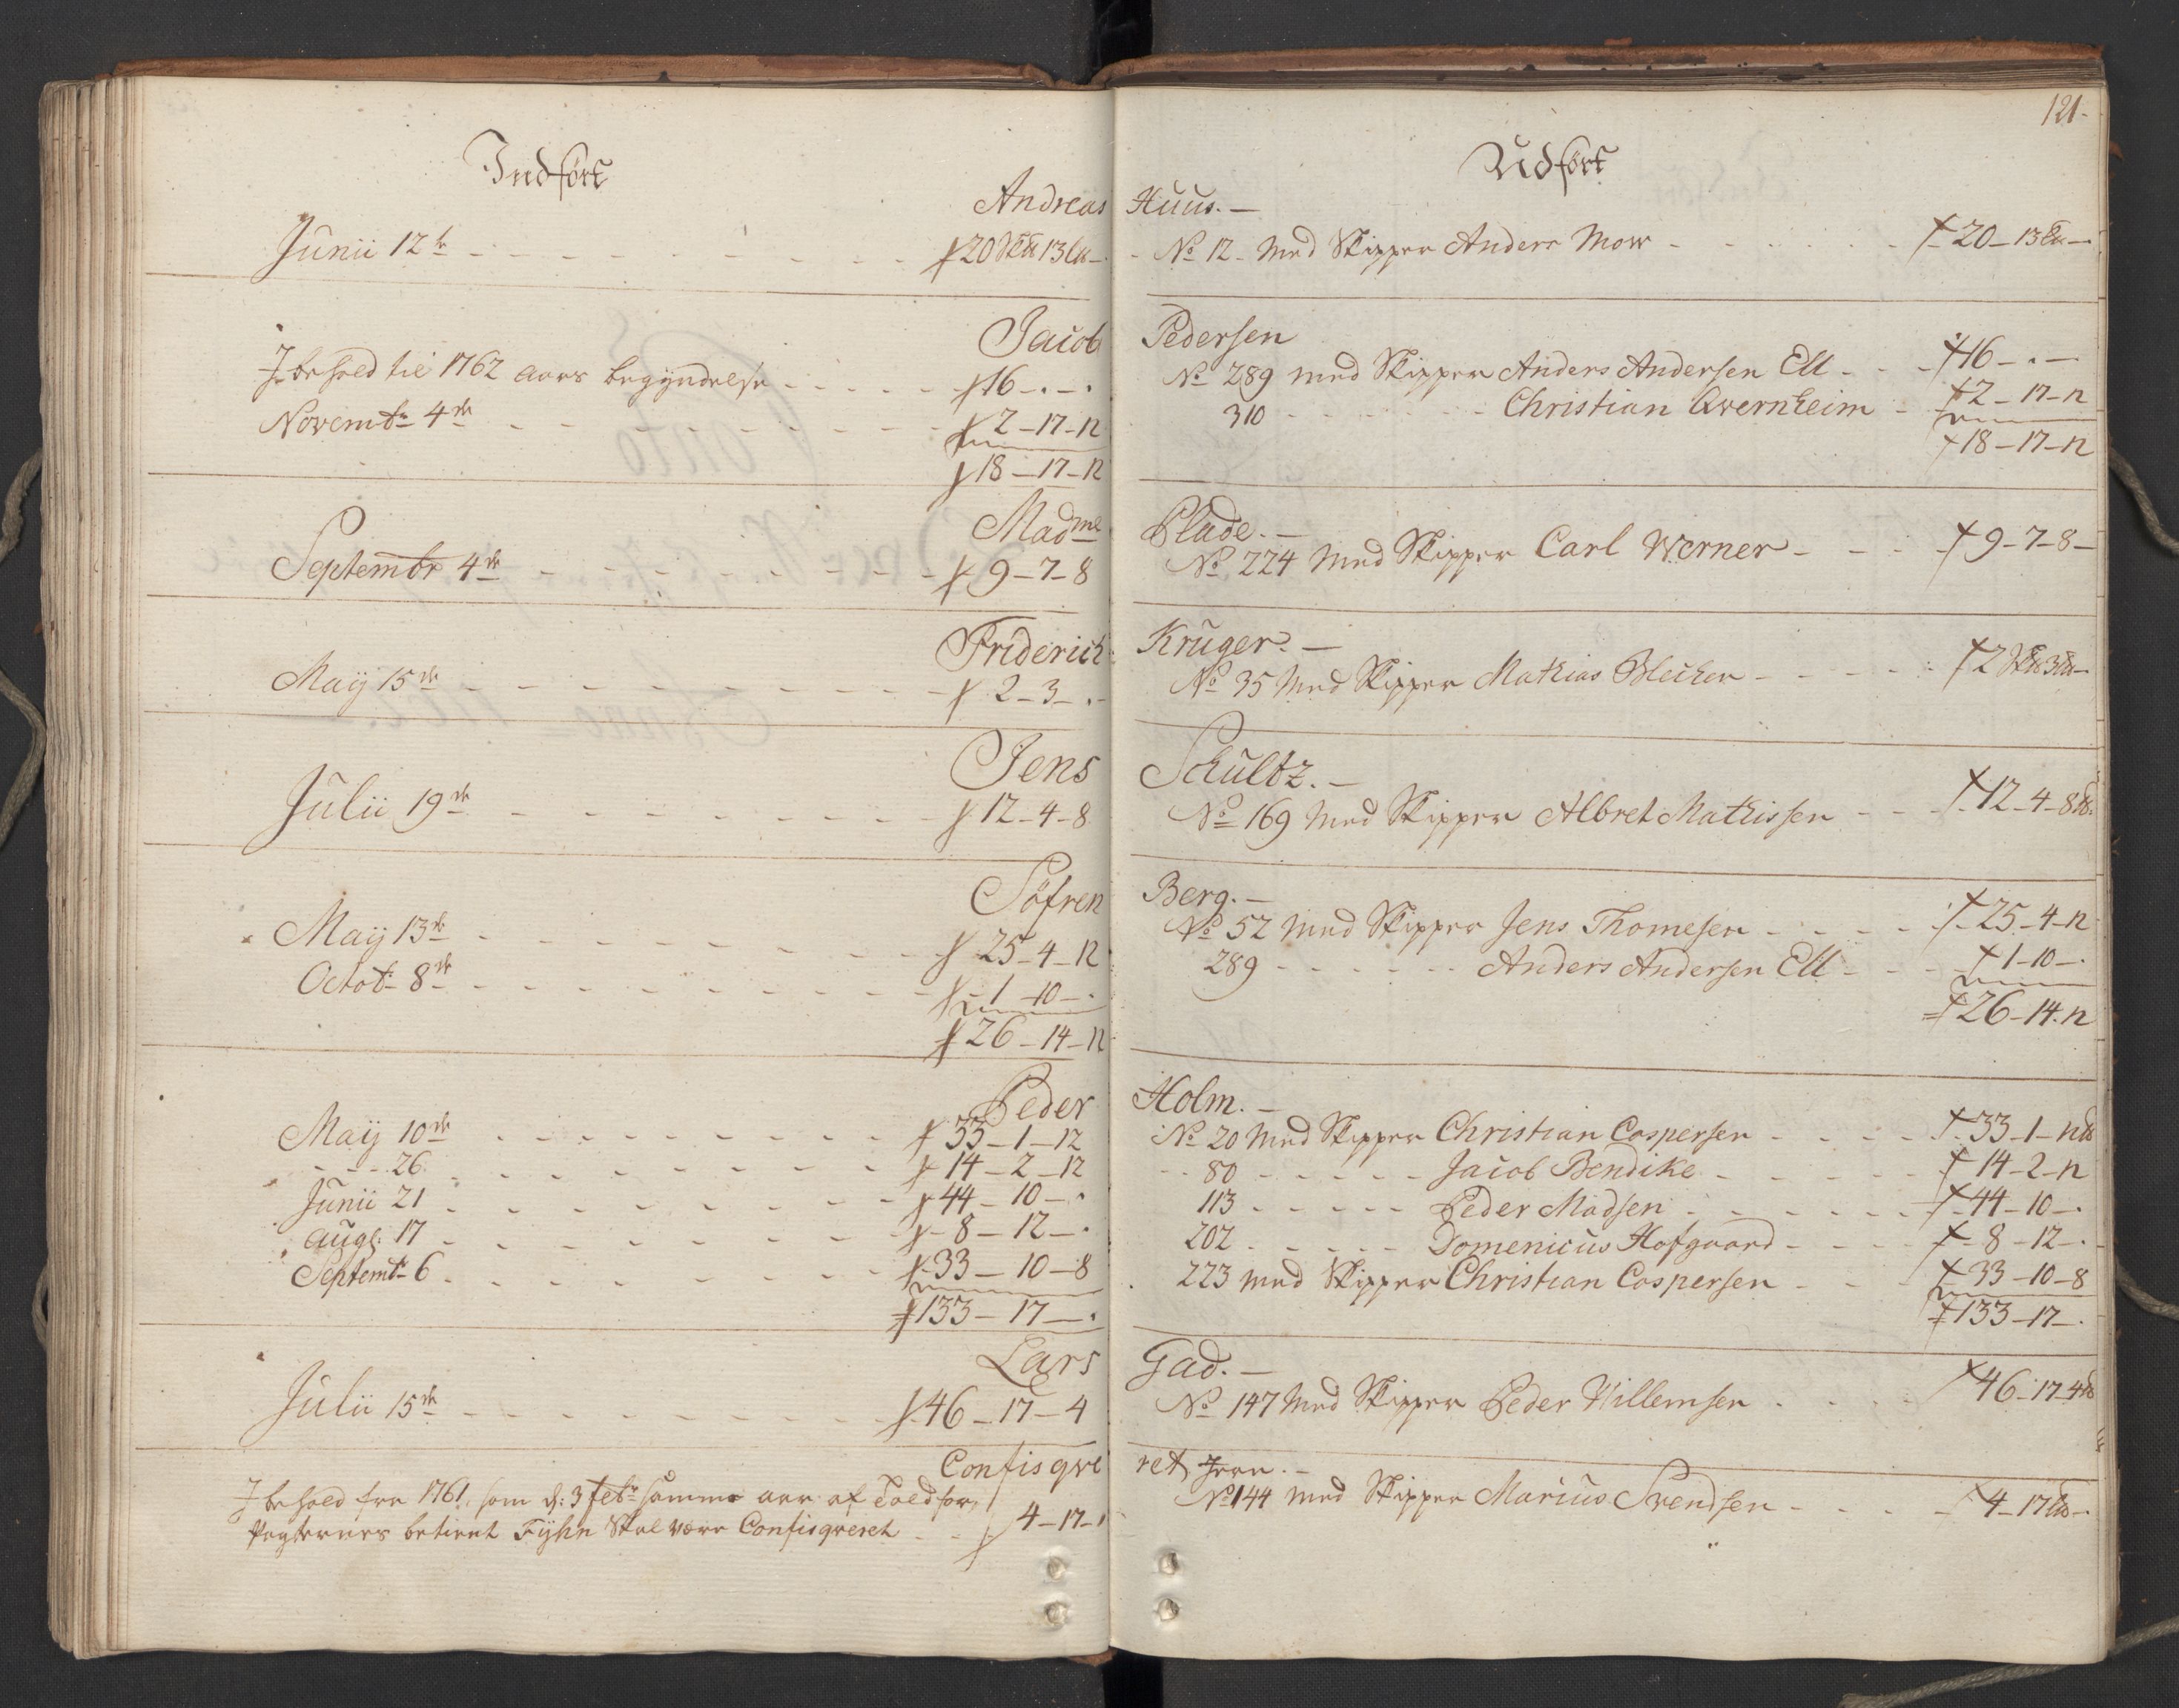 Indført
Andreas
Junii 12te ƒ 20 S℔ 13 L℔ -
Jacob
I behold til 1762 aars begyndelse ƒ 16 - . - .
Novembr 4de ƒ 2 - 17 - 12
ƒ 18 - 17 - 12
Madme
Septembr 4de ƒ 9 - 7 - 8
Friderich
Maÿ 15de ƒ 2 - 3 - . -
Jens
Julii 19de ƒ 12 - 4 - 8
Söfren
Maÿ 13de ƒ 25 - 4 - 12
Octob: 8de ƒ 1 - 10 - .
ƒ 26 - 14 - 12
Peder
Maÿ 10de ƒ 33 - 1 - 12
- - - 26 ƒ 14 - 2 - 12
Junii 21 ƒ 44 - 10 - .
Aug: 17 ƒ - 8 - 12 - .
Septembr 6 ƒ 33 - 10 - 8
ƒ 133 - 17 - .
Lars
Julii 15de ƒ 46 - 17 - 4
Confisqve
I behold fra 1761, som d: 3 febr samme aar af Toldfor,
pagternes betient Fÿhn skal være Confisqveret ƒ 4 - 17 - .
121.
Udført
Huus. -
No 12. med Skipper Anders Mow ƒ 20 - 13 L℔ -
Pedersen
No 289 med Skipper Anders Andersen Ell ƒ 16 - . -
310 Christian Qvernheim ƒ 2 - 17 - 12
ƒ 18 - 17 - 12
Plade. -
No 224 med Skipper Carl Werner ƒ 9 - 7 - 8 -
Krüger. -
No 35 med Skipper Mathias Blecher ƒ 2 S℔ 3 L℔ -
Schultz. -
No 169 med Skipper Albret Mathissen ƒ 12 - 4 - 8 ℔.
Berg. -
No 52 med Skipper Jens Thomesen ƒ 25 - 4 - 12
289 Anders Andersen Ell ƒ 1 - 10 - .
ƒ 26 - 14 - 12
Holm. -
No 20 med Skipper Christian Caspersen ƒ 33 - 1 - 12 ℔
80 Jacob Bendike ƒ 14 - 2 - 12
113 Peder Madsen ƒ 44 - 10 - .
202 Domenicus Hofgaard ƒ - 8 - 12 - .
223 med Skipper Christian Caspersen ƒ 33 - 10 - 8
ƒ 133 - 17 - .
Gad. -
No 147 med Skipper Peder Willemsen ƒ 46 - 17 - 4 ℔
ret Jern. -
No 144 med Skipper Marius Svendsen ƒ 4 - 17 L℔ - .